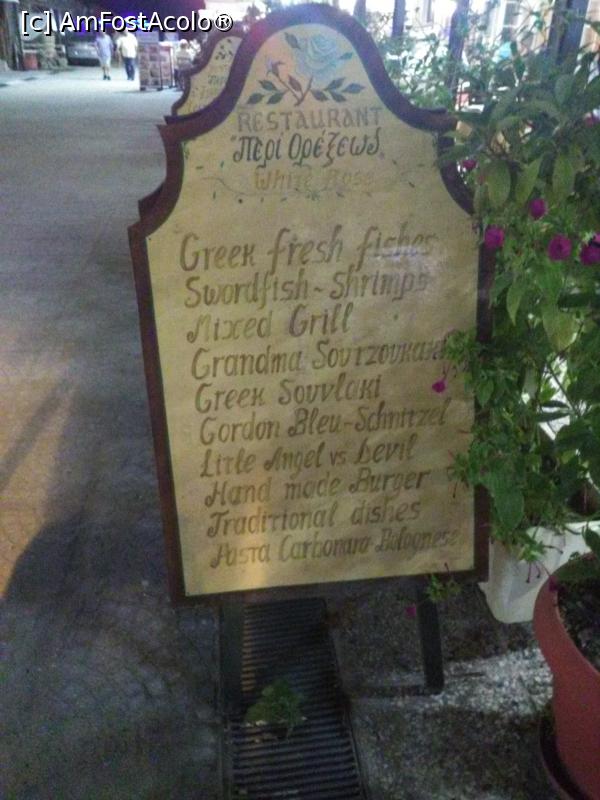 [c] AmFostAcolo®
RESTAURANT
"Περί Ορέξεως"
White Rose
Greek fresh fishes
Swordfish~Shrimps
Mixed Grill
Grandma Soutzoukaki
Greek Souvlaki
Gordon Bleu-Schnitzel
Litle Angel vs Devil
Hand made Burger
Traditional dishes
Pasta Carbonara-Bolognese